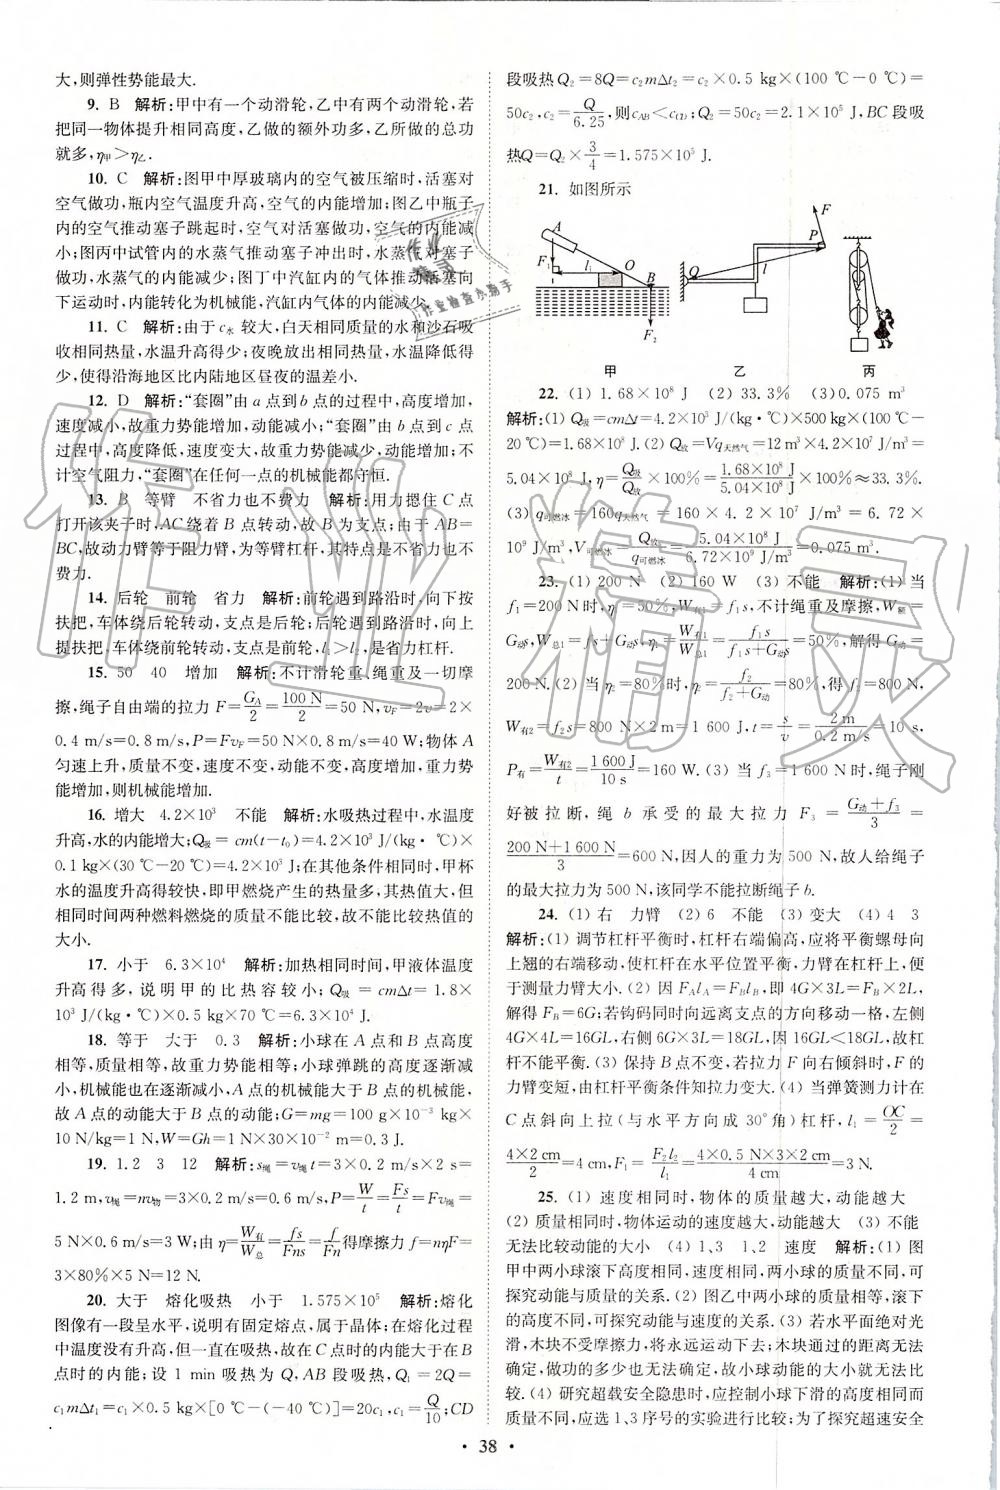 大,则弹性势能最大.
9. B 解析:甲中有一个动滑轮,乙中有两个动滑轮,若
把同一物体提升相同高度,乙做的额外功多,乙所做的总功
就多,η甲>η乙.
10. C 解析:图甲中厚玻璃内的空气被压缩时,活塞对
空气做功,瓶内空气温度升高,空气的内能增加;图乙中瓶子
内的空气推动塞子跳起时,空气对活塞做功,空气的内能减
小;图丙中试管内的水蒸气推动塞子冲出时,水蒸气对塞子
做功,水蒸气的内能减少;图丁中汽缸内的气体推动活塞向
下运动时,内能转化为机械能,汽缸内气体的内能减少.
11. C 解析:由于c水 较大,白天相同质量的水和沙石吸
收相同热量,水温升得少;夜晚放出相同热量,水温降低得
少,使得沿海地区比内陆地区昼夜的温差小.
12. D 解析:“套圈”由 a 点到 b 点的过程中,高度增加,
速度减小,故重力势能增加,动能减小;“套圈”由 b 点到 c 点
过程中,高度降低,速度变大,故重力势能减少,动能增加;不
计空气阻力,“套圈”在任何一点的机械能都守恒.
13. B 等臂 不省力也不费力 解析:用力摁住 C 点
打开该夹子时,AC 绕着 B 点转动,故 B 为支点;由于 AB=
BC,故动力臂等于阻力臂,为等臂杠杆,其特点是不省力也不
费力.
14. 后轮 前轮 省力 解析:前轮遇到路沿时,向下按
扶把,车体绕后轮转动,支点是后轮;后轮遇到路沿时,向上
提扶把,车体绕前轮转动,支点是前轮,l₁>l₂,是省力杠杆.
15. 50 40 增加 解析:不计滑轮重、绳重及一切摩
擦,绳子自由端的拉力 F=G_A/2=100 N/2=50 N,v_F=2v=2×
0.4 m/s=0.8 m/s,P=Fv_F=50 N×0.8 m/s=40 W;物体 A
匀速上升,质量不变,速度不变,动能不变,高度增加,重力势
能增加,则机械能增加.
16. 增大 4.2×10³ 不能 解析:水吸热过程中,水温度
升高,水的内能增大;Q吸=cm(t-t₀)=4.2×10³ J/(kg·℃)×
0.1 kg×(30 ℃-20 ℃)=4.2×10³ J;在其他条件相同时,甲杯
水的温度升高得较快,即甲燃烧产生的热量多,其热值大,但
相同时间内两种燃料燃烧的质量不能比较,故不能比较热值的
大小.
17. 小于 6.3×10⁴ 解析:加热相同时间,甲液体温度
升高得多,说明甲的比热容较小;Q吸=cmΔt=1.8×
10³ J/(kg·℃)×0.5 kg×70 ℃=6.3×10⁴ J.
18. 等于 大于 0.3 解析:小球在 A 点和 B 点高度
相等,质量相等,故重力势能相等;小球弹跳的高度逐渐减
小,机械能也在逐渐减小,A 点的机械能大于 B 点的机械能,
故 A 点的动能大于 B 点的动能;G=mg=100 g×10⁻³ kg×
10 N/kg=1 N,W=Gh=1 N×30×10⁻² m=0.3 J.
19. 1.2 3 12 解析:s绳=v绳t=3×0.2 m/s×2 s=
1.2 m,v绳=nv物=3×0.2 m/s=0.6 m/s,P=W/t=Fs/t=Fv绳=
5 N×0.6 m/s=3 W;由 η=W有/W总=fs/Fns=f/Fn得摩擦力 f=nηF=
3×80%×5 N=12 N.
20. 大于 熔化吸热 小于 1.575×10⁵ 解析:熔化
图像有一段呈水平,说明有固定熔点,属于晶体;在熔化过程
中温度没有升高,但一直在吸热,故在 C 点时的内能大于在 B
点时的内能;设 1 min 吸热为 Q,AB 段吸热,Q₁=2Q=
c₁mΔt₁=c₁×0.5 kg×[0 ℃-(-40 ℃)]=20c₁,c₁=Q/10;CD
段吸热 Q₂=8Q=c₂mΔt₂=c₂×0.5 kg×(100 ℃-0 ℃)=
50c₂,c₂=Q/6.25,则 c_AB<c_CD;Q₂=50c₂=2.1×10⁵ J,BC 段吸
热Q=Q₂×3/4=1.575×10⁵ J.
21. 如图所示
A
F₁
l₁
O
B
F₂
甲
F
P
Q
l
乙
丙
22. (1) 1.68×10⁸ J (2) 33.3% (3) 0.075 m³
解析:(1) Q吸=cmΔt=4.2×10³ J/(kg·℃)×500 kg×(100 ℃-
20 ℃)=1.68×10⁸ J.(2) Q放=Vq天然气=12 m³×4.2×10⁷ J/m³=
5.04×10⁸ J,η=Q吸/Q放=1.68×10⁸ J/5.04×10⁸ J×100%≈33.3%.
(3) q可燃冰=160q天然气=160×4.2×10⁷ J/m³=6.72×
10⁹ J/m³,V可燃冰=Q放/q可燃冰=5.04×10⁸ J/6.72×10⁹ J/m³=0.075 m³.
23. (1) 200 N (2) 160 W (3) 不能 解析:(1) 当
f₁=200 N时,η=50%,W有1=f₁s,不计绳重及摩擦,W额=
G动s,W总1=f₁s+G动s,η₁=W有1/W总1=f₁s/f₁s+G动s=50%,解得 G动=
200 N.(2) 当 η=80%时,η₂=f₂/f₂+G动=80%,得 f₂=800 N,
W有2=f₂s=800 N×2 m=1 600 J,t=s/v=2 m/0.2 m/s=10 s,
P有=W有2/t=1 600 J/10 s=160 W.(3) 当 f₃=1 600 N时,绳子刚
好被拉断,绳 b 承受的最大拉力 F₃=G动+f₃/3=
200 N+1 600 N/3=600 N,因人的重力为 500 N,故人给绳子
的最大拉力为 500 N,该同学不能拉断绳子 b.
24. (1) 右 力臂 (2) 6 不能 (3) 变大 (4) 4 3
解析:(1) 调节杠杆平衡时,杠杆右端偏高,应将平衡螺母向
上翘的右端移动,使杠杆在水平位置平衡,力臂在杠杆上,便
于测量力臂大小.(2) 因 F_Al_A=F_Bl_B,即 4G×3L=F_B×2L,
解得 F_B=6G;若钩码同时向远离支点的方向移动一格,左侧
4G×4L=16GL,右侧 6G×3L=18GL,16GL<18GL,故杠
杆不能平衡.(3) 保持 B 点不变,若拉力 F 向右倾斜时,F 的
力臂变短,由杠杆平衡条件知拉力变大.(4) 当弹簧测力计在
C 点斜向上拉(与水平方向成 30°角)杠杆,l₁=OC/2=
4×2 cm/2=4 cm,F₁=F₂l₂/l₁=4×0.5 N×3×2 cm/4 cm=3 N.
25. (1) 速度相同时,物体的质量越大,动能越大
(2) 质量相同时,物体运动的速度越大,动能越大 (3) 不能
无法比较动能的大小 (4) 1、3 1、2 速度 解析:(1) 图
甲中两小球滚下高度相同,速度相同,两小球的质量不同,可
探究动能与质量的关系.(2) 图乙中两小球的质量相等,滚下
的高度不同,可探究动能与速度的关系.(3) 若水平面绝对光
滑,木块不受摩擦力,将永远运动下去;木块通过的距离无法
确定,做功的多少也无法确定,故小球动能的大小就无法比
较.(4) 研究超载安全隐患时,应控制小球下滑的高度相同而
质量不同,应选 1、3 序号的实验进行比较;为了探究超速安全
• 38 •
作业精灵
作业检查小助手
作业精灵